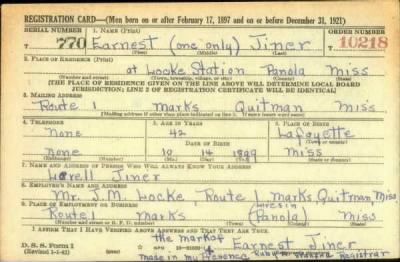 REGISTRATION CARD—(Men born on or after February 17, 1897 and on or before December 31, 1921)
SERIAL NUMBER 1. NAME (Print) ORDER NUMBER
T 770 Earnest (one only) Jiner 10218
(First) (Middle) (Last)
2. PLACE OF RESIDENCE (Print)
at Locke Station Panola Miss
(Number and street) (Town, township, village, or city) (County) (State)
[THE PLACE OF RESIDENCE GIVEN ON THE LINE ABOVE WILL DETERMINE LOCAL BOARD
JURISDICTION; LINE 2 OF REGISTRATION CERTIFICATE WILL BE IDENTICAL]
3. MAILING ADDRESS
Route 1 marks Quitman Miss
[Mailing address if other than place indicated on line 2. If same insert word same]
4. TELEPHONE 5. AGE IN YEARS 6. PLACE OF BIRTH
none 42 Lafayette
DATE OF BIRTH (Town or county)
none 10 14 1899 Miss
(Mo.) (Day) (Yr.) (State or country)
7. NAME AND ADDRESS OF PERSON WHO WILL ALWAYS KNOW YOUR ADDRESS
Jiner
8. EMPLOYER'S NAME AND ADDRESS
Mr. J. M. Locke Route 1 Marks, Quitman, Miss
9. PLACE OF EMPLOYMENT OR BUSINESS
Route 1 marks (Lives in Panola) Miss
(Number and street or R. F. D. number) (Town) (County) (State)
I AFFIRM THAT I HAVE VERIFIED ABOVE ANSWERS AND THAT THEY ARE TRUE.
D. S. S. Form 1 the mark of
(Revised 1-1-42) Earnest Jiner
made in my presence Registrar